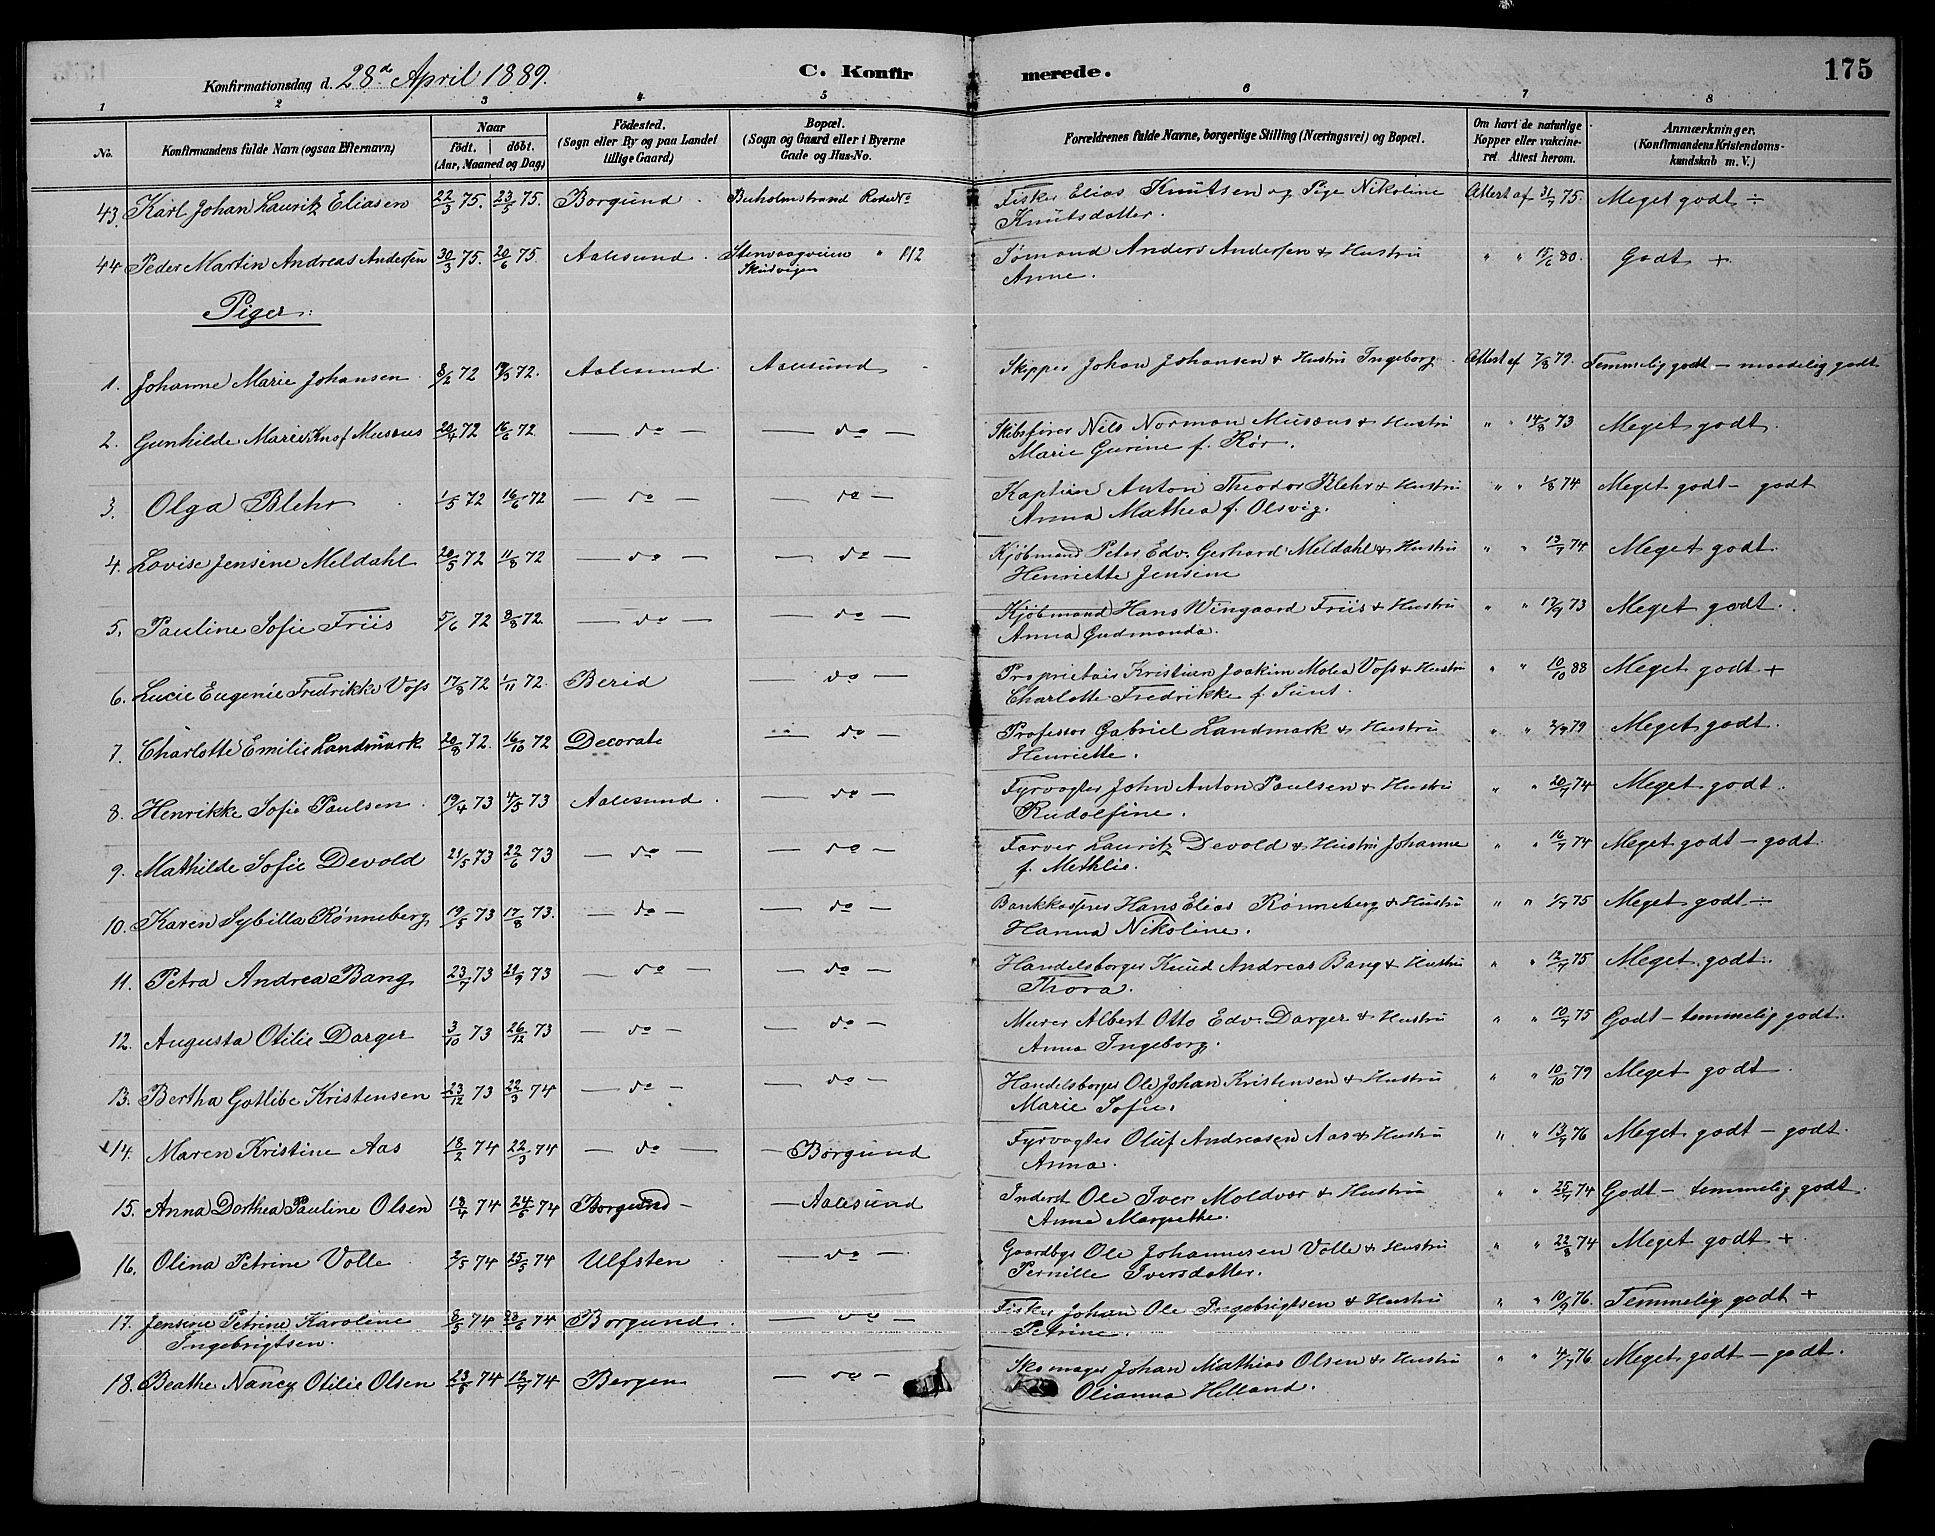 Konfirmationsdag d. 28de April 1889. C. Konfirmerede. 175
1 2 3 4 5 6 7 8
No. Konfirmandens fulde Navn (ogsaa Efternavn) Naar födt. döbt. (Aar, Maaned og Dag) Födested. (Sogn eller By og paa Landet tillige Gaard) Bopæl. (Sogn og Gaard eller i Byerne Gade og Hus-No. Forældrenes fulde Navne, borgerlige Stilling (Næringsvei) og Bopæl. Om havt de naturlige Kopper eller vakcineret. Attest herom. Anmærkninger. (Konfirmandens Kristendomskundskab m. V.)
43. Karl Johan Lauritz Eliasen 22/3 75. 23/5 75. Borgund. Buholmstrand Rode No Fisker Elias Knutsen og Pige Nikoline Attest af 31/7 75. Meget godt ÷
Knutsdatter.
44 Peder Martin Andreas Andersen 30/3 75. 20/6 75 Aalesund. Stenvaagveien " 112 Sømand Anders Andersen & Hustru " " 15/6 80. Godt +
Skudvigen Anne.
Piger:
1. Johanne Marie Johansen 8/2 72 72. Aalesund. Aalesund Skipper Johan Johansen & Hustru Ingeborg. Attest af 7/8 79. Temmelig godt – maadelig godt
2. Gunhilde Marie Knof Musæus 20/4 72 16/6 72 — do — — do — Skibsfører Nils Norman Musæus & Hustru " " 14/8 73 Meget godt.
Marie Gurine f. Rør.
3. Olga Blehr 1/5 72 16/6 72 — do — — do — Kaptien Anton Theodor Blehr & Hustru " " 1/8 74 Meget godt – godt
Anna Mathea f. Olsvig.
4. Lovise Jensine Meldahl 20/5 72 11/8 72 — do — — do — Kjøbmand Peter Edv. Gerhard Meldahl & Hustru " " 13/7 74 Meget godt.
Henriette Jensine
5. Pauline Sofie Friis 5/6 72 8/8 72. — do — — do — Kjøbmand Hans Wingaard Friis & Hustru " " 17/9 73 Meget godt.
Anna Gudmunda.
6. Lucie Eugenie Fredrikke Voss 17/8 72 1/11 72. Berid — do — Proprietair Kristian Joakim Voss & Hustru " " 10/10 88 Meget godt +
Charlotte Fredrikke f.
7. Charlotte Emilie Landmark 20/8 72. 16/10 72 Decorah — do — Professor Gabriel Landmark & Hustru " " 79 Meget godt.
Henriette.
8. Henrikke Sofie Paulsen 19/4 73 4/5 73 Aalesund. — do — Fyrvogter John Anton Paulsen & Hustru " " 20/7 74 Meget godt.
Rudolfine.
9. Mathilde Sofie Devold 21/5 73 22/6 73 — do — — do — Farver Lauritz Devold & Hustru Johanne " " 16/7 74 Meget godt – godt
f. Methlie.
10. Karen Sybilla Rønneberg 19/5 73 17/8 73. — do — — do — Bankkasserer Hans Elias Rønneberg & Hustru " " 1/7 75 Meget godt ÷
Hanna Nikoline.
11. Petra Andrea Bang 23/7 73 21/9 73 — do — — do — Handelsborger Knud Andreas Bang & Hustru " " 12/7 75 Meget godt.
Thora.
12. Augusta Otilie Darger 3/10 73 26/12 73 — do — — do — Murer Albert Otto Edv. Darger & Hustru " " 10/7 75 Godt – temmelig godt.
Anna Ingeborg.
13. Bertha Gotlibe Kristensen 23/12 73 22/3 74 — do — — do — Handelsborger Ole Johan Kristensen & Hustru " " 10/10 79 Meget godt
Marie Sofie.
14. Maren Kristine Aas 18/2 74 22/3 74 — do — — Borgund Fyrvogter Oluf Andreasen Aas & Hustru " " 13/7 76 Meget godt – godt.
Anna.
15. Anna Dorthea Pauline Olsen 13/4 74 24/5 74 Borgund – — Aalesund Inderst Ole Iver Moldvær & Hustru " " 25/7 74 Godt – temmelig godt.
Anne Margrethe.
16. Olina Petrine Volle 2/5 74 25/5 74 Ulfsten — do — Gaardbgr Ole Johannesen Volle & Hustru " " 22/8 74 Meget godt +
Pernille Iversdatter.
17. Jensine Petrine Karoline 8/5 74 28/6 74 Borgund. — do — Fisker Johan Ole Ingebrigtsen & Hustru " " 10/9 76. Temmelig godt +
Ingebrigtsen. Petrine.
18. Beathe Nancy Otilie Olsen 74 12/7 74 Bergen — do — Skomager Johan Mathias Olsen & Hustru " " 4/7 76 Meget godt – godt.
Olianna Helland.